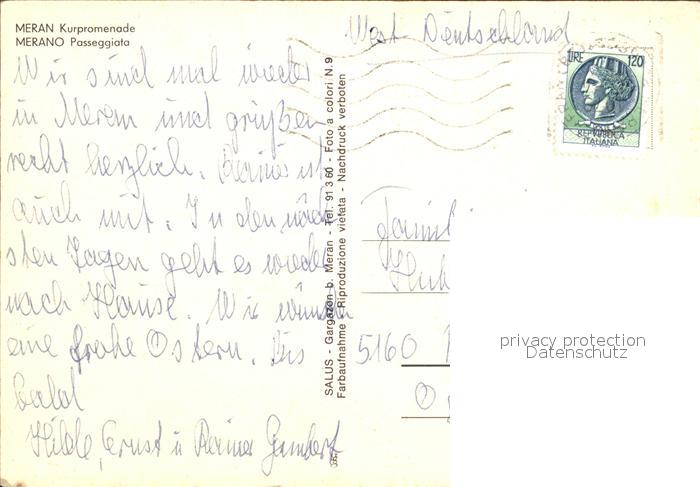 MERAN Kurpromenade
MERANO Passeggiata
West Deutschland
LIRE 120
REPVBBLICA
ITALIANA
Wir sind mal wieder
in Meran und grüßen
recht herzlich. Rainer ist
auch mit. In den näch
sten Tagen geht es wieder
nach Hause. Wir wünschen
eine frohe Ostern. Bis
bald
Hilde, Ernst u Rainer
SALUS - Gargazon b. Meran - Tel. 91 3 60 - Foto a colori N. 9
Farbaufnahme - Riproduzione vietata - Nachdruck verboten
Famil
5160
privacy protection
Datenschutz